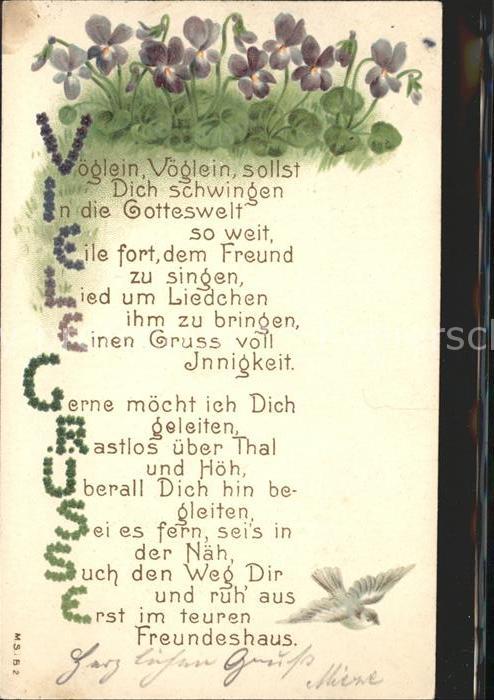 Vöglein, Vöglein, sollst
Dich schwingen
In die Gotteswelt
so weit,
Eile fort, dem Freund
zu singen,
Lied um Liedchen
ihm zu bringen,
Einen Gruss voll
Jnnigkeit.
Gerne möcht ich Dich
geleiten,
Rastlos über Thal
und Höh,
Überall Dich hin be-
gleiten,
Sei es fern, sei's in
der Näh,
Such den Weg Dir
und ruh' aus
Erst im teuren
Freundeshaus.
Herzlichen Gruß
Mieze
M.S.i.B 2